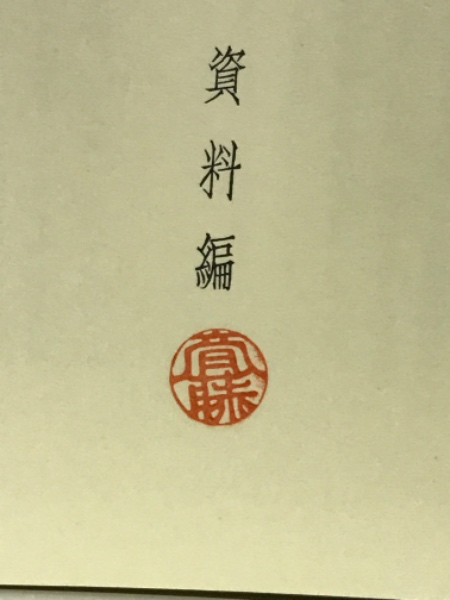 資料編